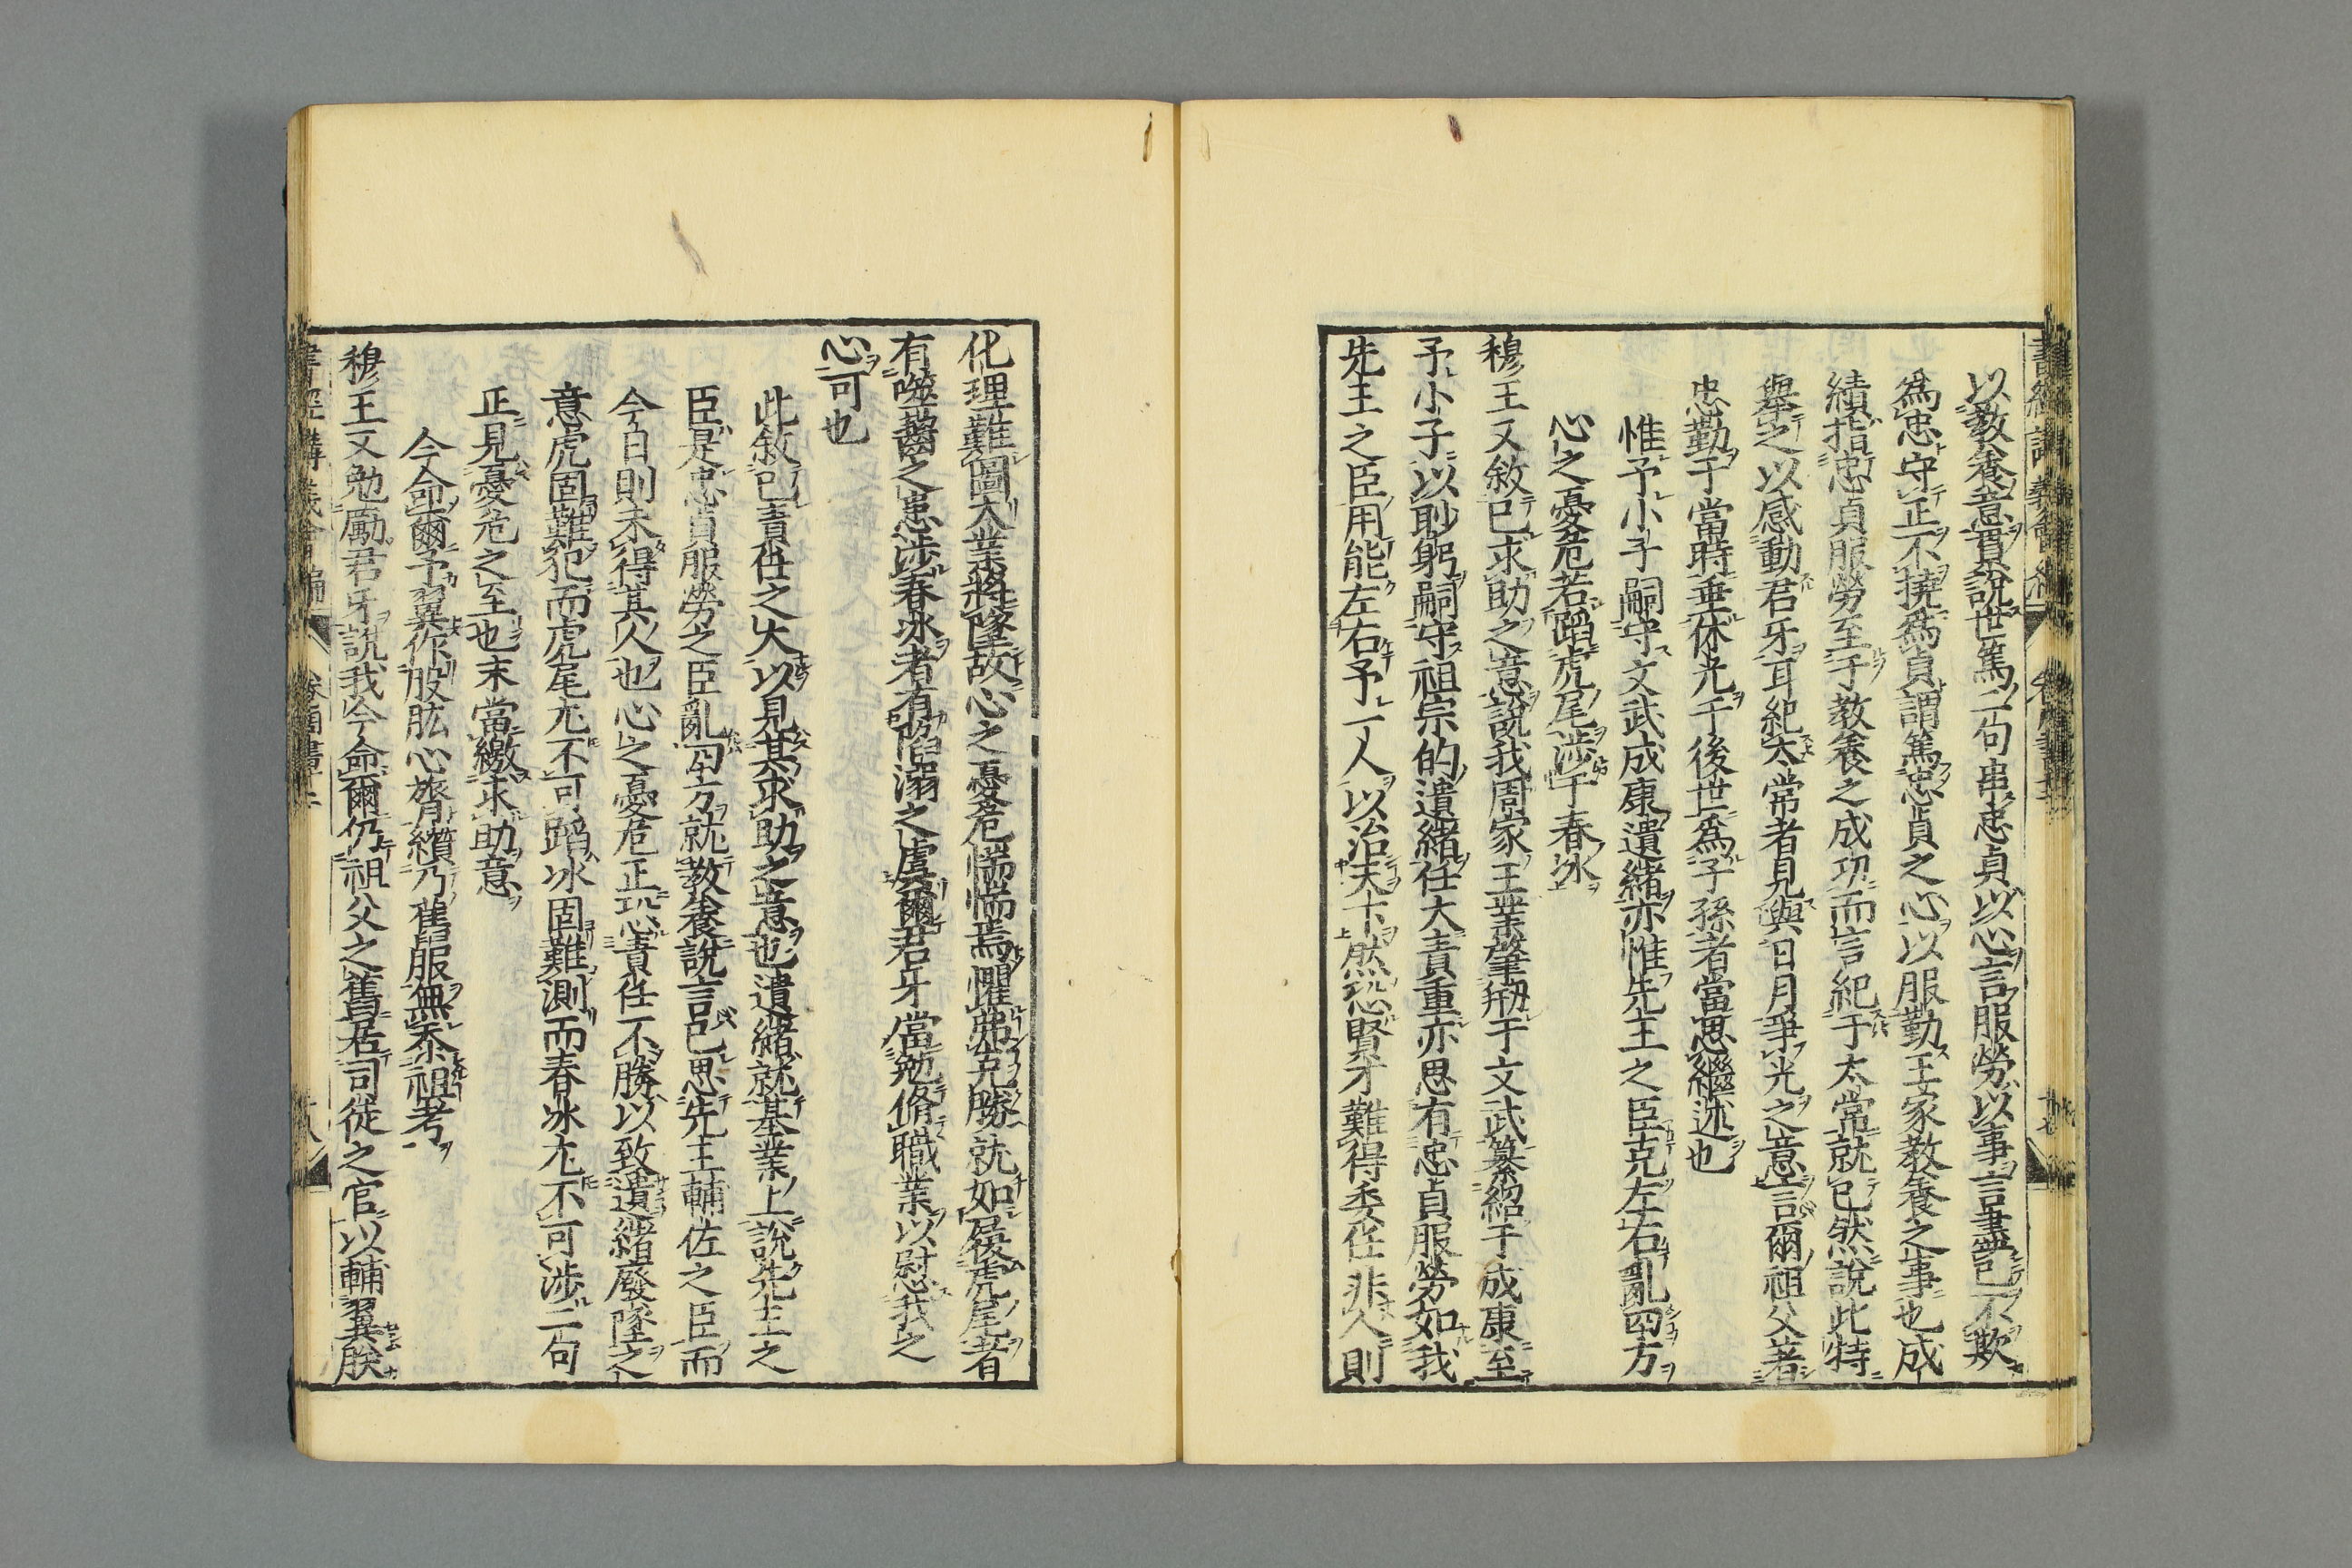 以教養意貫說世篤二句串忠貞以心言服勞以事言盡己不欺
爲忠守正不撓爲貞謂篤忠貞之心以服勤王家教養之事也成
績指忠貞服勞至于教養之成功而言紀于太常就已然說此特
舉之以感動君牙耳紀太常者見與日月爭光之意言爾祖父著
忠勤于當時垂休光于後世爲子孫者當思繼述也
惟予小子嗣守文武成康遺緒亦惟先王之臣克左右亂四方
心之憂危若蹈虎尾涉于春冰
穆王又敘已求助之意說我周家王業肇剏于文武纂紹于成康至
予小子以眇躬嗣守祖宗的遺緒任大責重亦思有忠貞服勞如我
先王之臣用能左右予一人以治天下然恐賢才難得委任非人則
化理難圖大業將墜故心之憂危惴惴焉懼弗克勝就如履虎尾者
有噬齧之患涉春冰者有陷溺之虞爾君牙當勉脩職業以慰我之
心可也
此敘已責任之大以見其求助之意也遺緒就基業上說先王之
臣是忠貞服勞之臣亂四方就教養說言已思先王輔佐之臣而
今日則未得其人也心之憂危正恐責任不勝以致遺緒廢墜之
意虎固難犯而虎尾尤不可蹈冰固難測而春冰尤不可涉二句
正見憂危之至也末當繳求助意
今命爾予翼作股肱心膂纘乃舊服無忝祖考
穆王又勉勵君牙說我今命爾仍祖父之舊居司徒之官以輔翼朕
書經講義會編 卷 周書